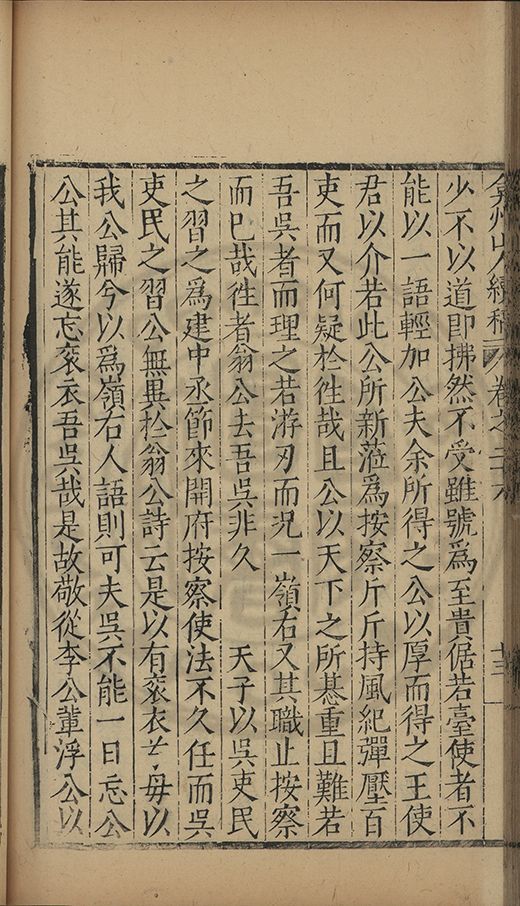 弇州山人續稿 卷之二十六 十三
少不以道即拂然不受雖號爲至貴倨若臺使者不
能以一語輕加公夫余所得之公以厚而得之王使
君以介若此公所新蒞爲按察斤斤持風紀彈壓百
吏而又何疑於徃哉且公以天下之所惎重且難若
吾吳者而理之若游刃而况一嶺右又其職止按察
而已哉徃者翁公去吾吳非久 天子以吳吏民
之習之爲建中丞節來開府按察使法不久任而吳
吏民之習公無異於翁公詩云是以有衮衣兮毋以
我公歸今以爲嶺右人語則可夫吳不能一日忘公
公其能遂忘衮衣吾吳哉是故敬從李公輩浮公以